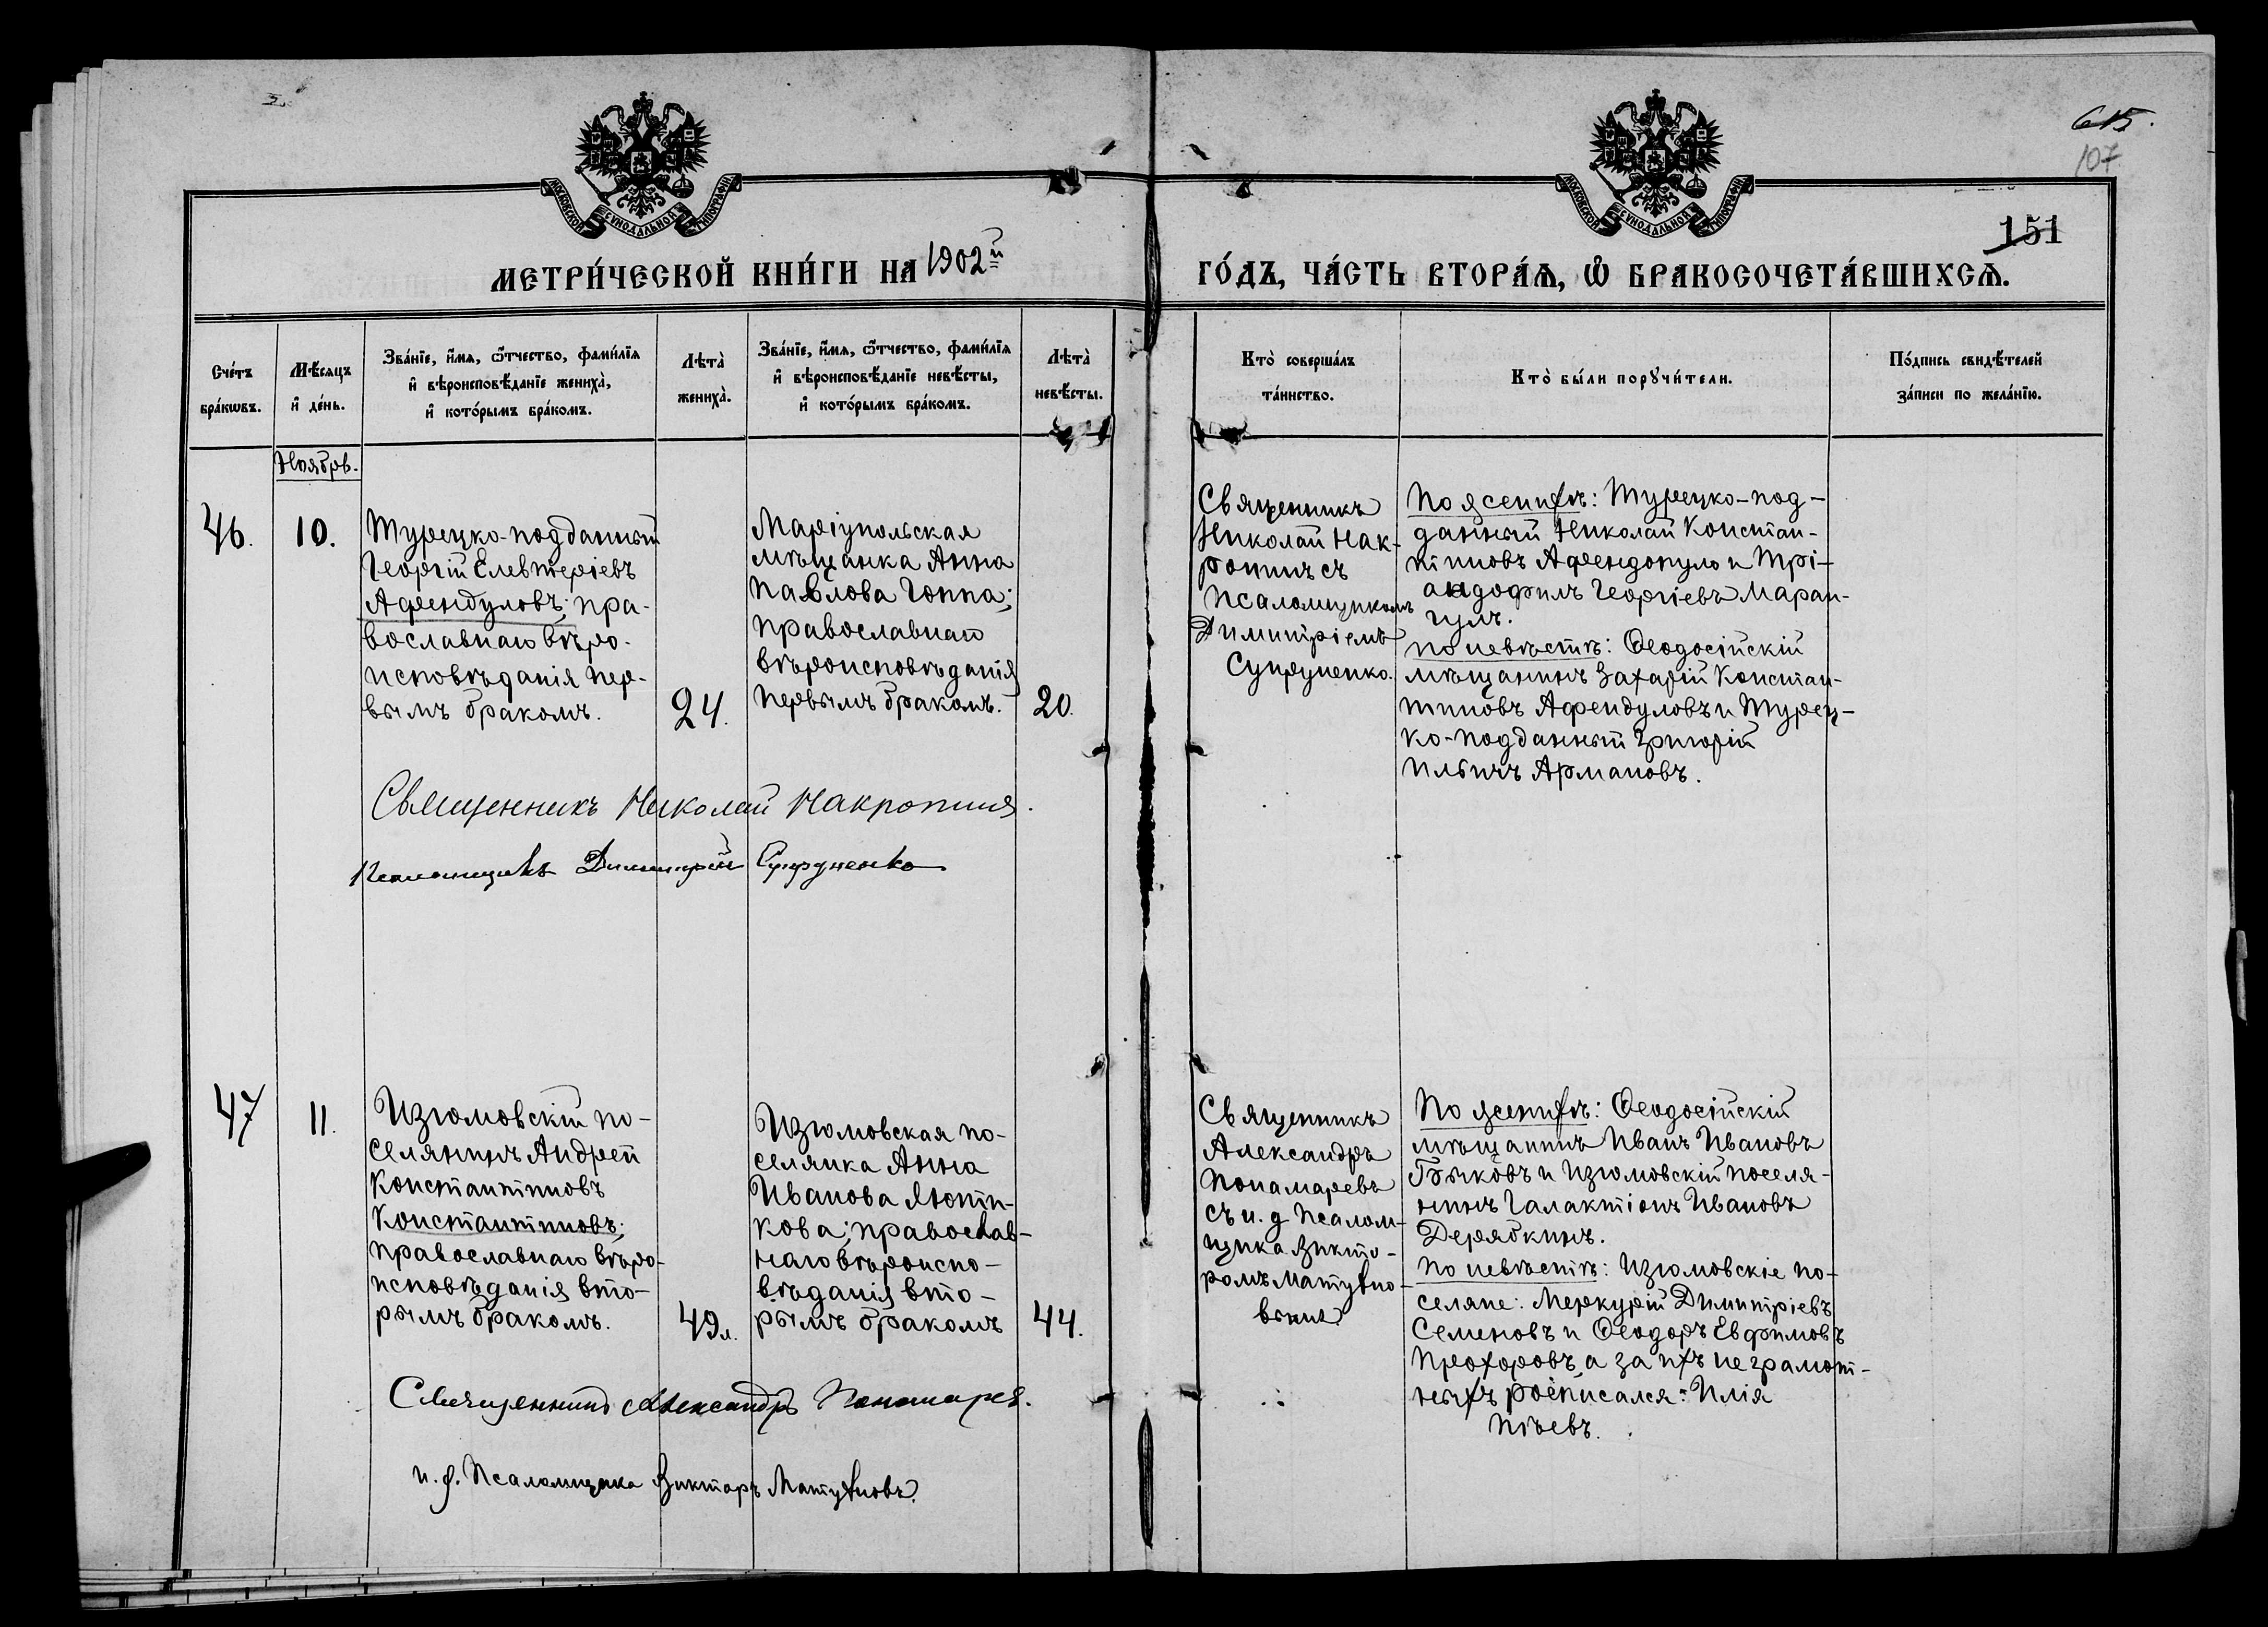 615.
107
151
МОСКОВСКОЙ СѴНОДАЛЬНОЙ ТИПОГРАФІИ
МОСКОВСКОЙ СѴНОДАЛЬНОЙ ТИПОГРАФІИ
МЕТРИ́ЧЕСКОЙ КНИ́ГИ НА 1902й
ГО́ДЪ, ЧА́СТЬ ВТОРА́Я, Ѡ҆ БРАКОСОЧЕТА́ВШИХСЯ.
Сче́тъ
бра́кѡвъ.
Мѣ́сяцъ
и҆ де́нь.
Зва́нїе, и҆́мя, ѻ҆́тчество, фами́лїя
и҆ вѣроисповѣ́данїе жениха̀,
и҆ кото́рымъ бра́комъ.
Лѣта̀
жениха̀.
Зва́нїе, и҆́мя, ѻ҆́тчество, фами́лїя
и҆ вѣроисповѣ́данїе невѣ́сты,
и҆ кото́рымъ бра́комъ.
Лѣта̀
невѣ́сты.
Кто̀ соверша́лъ
та́инство.
Кто̀ бы́ли порꙋчи́тели.
По́дпись свидѣ́телей
за́писи по жела́нїю.
Ноябрь.
46.
10.
Турецко-подданный
Георгій Елевтеріевъ
Афендуловъ; пра-
вославнаго вѣро-
исповѣданія пер-
вымъ бракомъ.
24.
Маріупольская
мѣщанка Анна
Павлова Гоппа;
православнаго
вѣроисповѣданія
первымъ бракомъ.
20.
Священникъ
Николай Нак-
ропинъ съ
псаломщикомъ
Димитріемъ
Супруненко.
По женихѣ: Турецко-под-
данный Николай Констан-
тиновъ Афендопуло и Трі-
андофилъ Георгіевъ Маран-
гулъ.
по невѣстѣ: Ѳеодосійскій
мѣщанинъ Захарій Констан-
тиновъ Афендуловъ и Турец-
ко-подданный Григорій
Ильичъ Армановъ.
Священникъ Николай Накропинъ.
Псаломщикъ Димитрій Супруненко
47
11.
Изюмовскій по-
селянинъ Андрей
Константиновъ
Константиновъ;
православнаго вѣро-
исповѣданія вто-
рымъ бракомъ.
49 л.
Изюмовская по-
селянка Анна
Иванова Лютти-
кова; православ-
наго вѣроиспо-
вѣданія вто-
рымъ бракомъ
44.
Священникъ
Александръ
Понамаревъ
съ и. д. псалом-
щика Викто-
ромъ Матухно-
вымъ.
По женихѣ: Ѳеодосійскій
мѣщанинъ Иванъ Ивановъ
Быковъ и Изюмовскій поселя-
нинъ Галактіонъ Ивановъ
Дерябкинъ.
по невѣстѣ: Изюмовскіе по-
селяне: Меркурій Димитріевъ
Семеновъ и Ѳеодоръ Евфимовъ
Прохоровъ, а за ихъ неграмот-
ныхъ росписался: Илія
Священникъ Александръ Пономаревъ.
и. д. Псаломщика Викторъ Матухновъ.